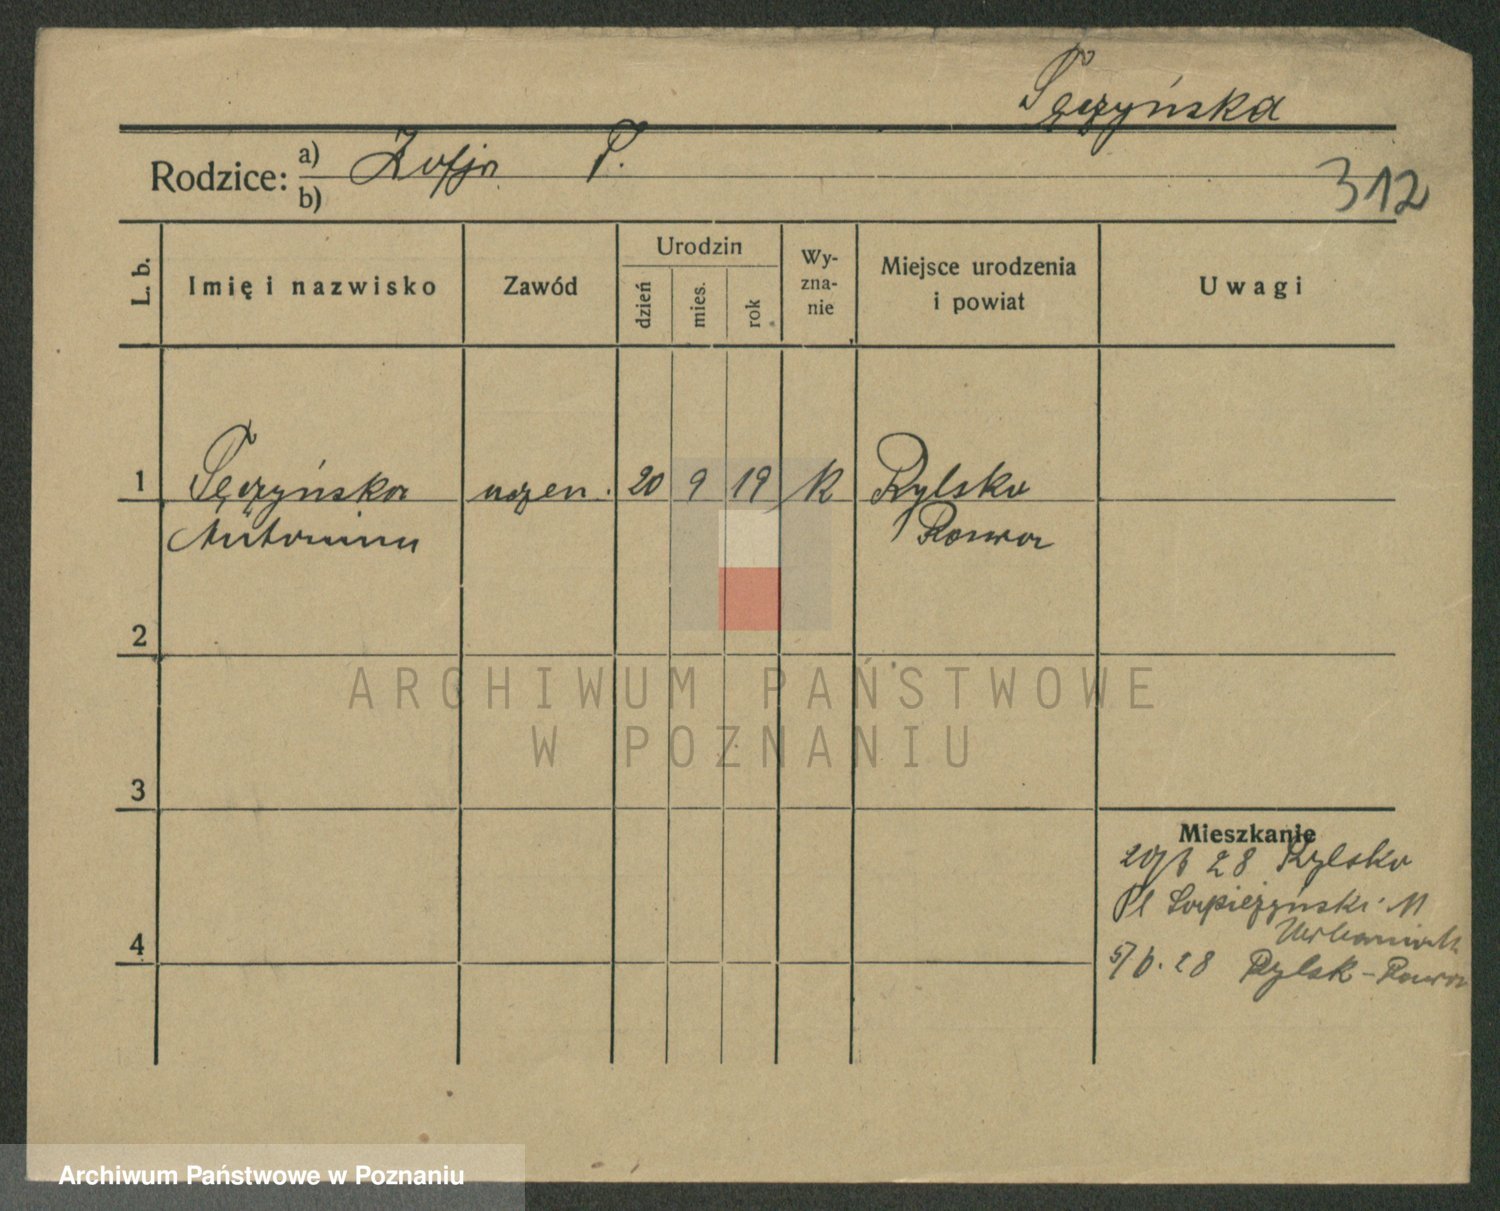 Tęczyńska
Rodzice: a) Zofja T.
b)
312
L. b. Imię i nazwisko Zawód Urodzin dzień mies. rok Wy-zna-nie Miejsce urodzenia i powiat Uwagi
1 Tęczyńska uczen. 20 9 19 k Rylsko
Antonina Rawa
2
ARCHIWUM PAŃSTWOWE
W POZNANIU
3
Mieszkanie
28 Rylsko
Pl Sapieżyński 11
4 Urbaniak
5/6. 28 Rylsk - Rawa
Archiwum Państwowe w Poznaniu